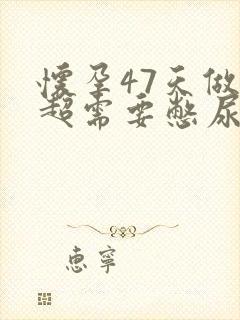 懷孕47天做
超需要憋尿
惠寧